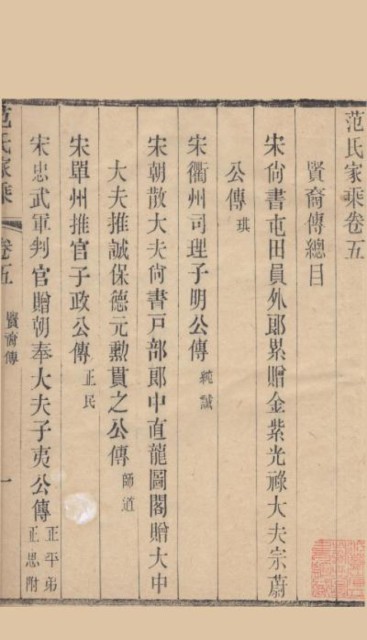 范氏家乘卷五
賢裔傳總目
宋尙書屯田員外郎累贈金紫光祿大夫宗蔚
公傳 琪
宋衢州司理子明公傳 純誠
宋朝散大夫尙書戸部郎中直龍圖閣贈大中
大夫推誠保德元勳貫之公傳 師道
宋單州推官子政公傳 正民
宋忠武軍判官贈朝奉大夫子夷公傳 正平弟正思附
范氏家乘 卷五 賢裔傳 一